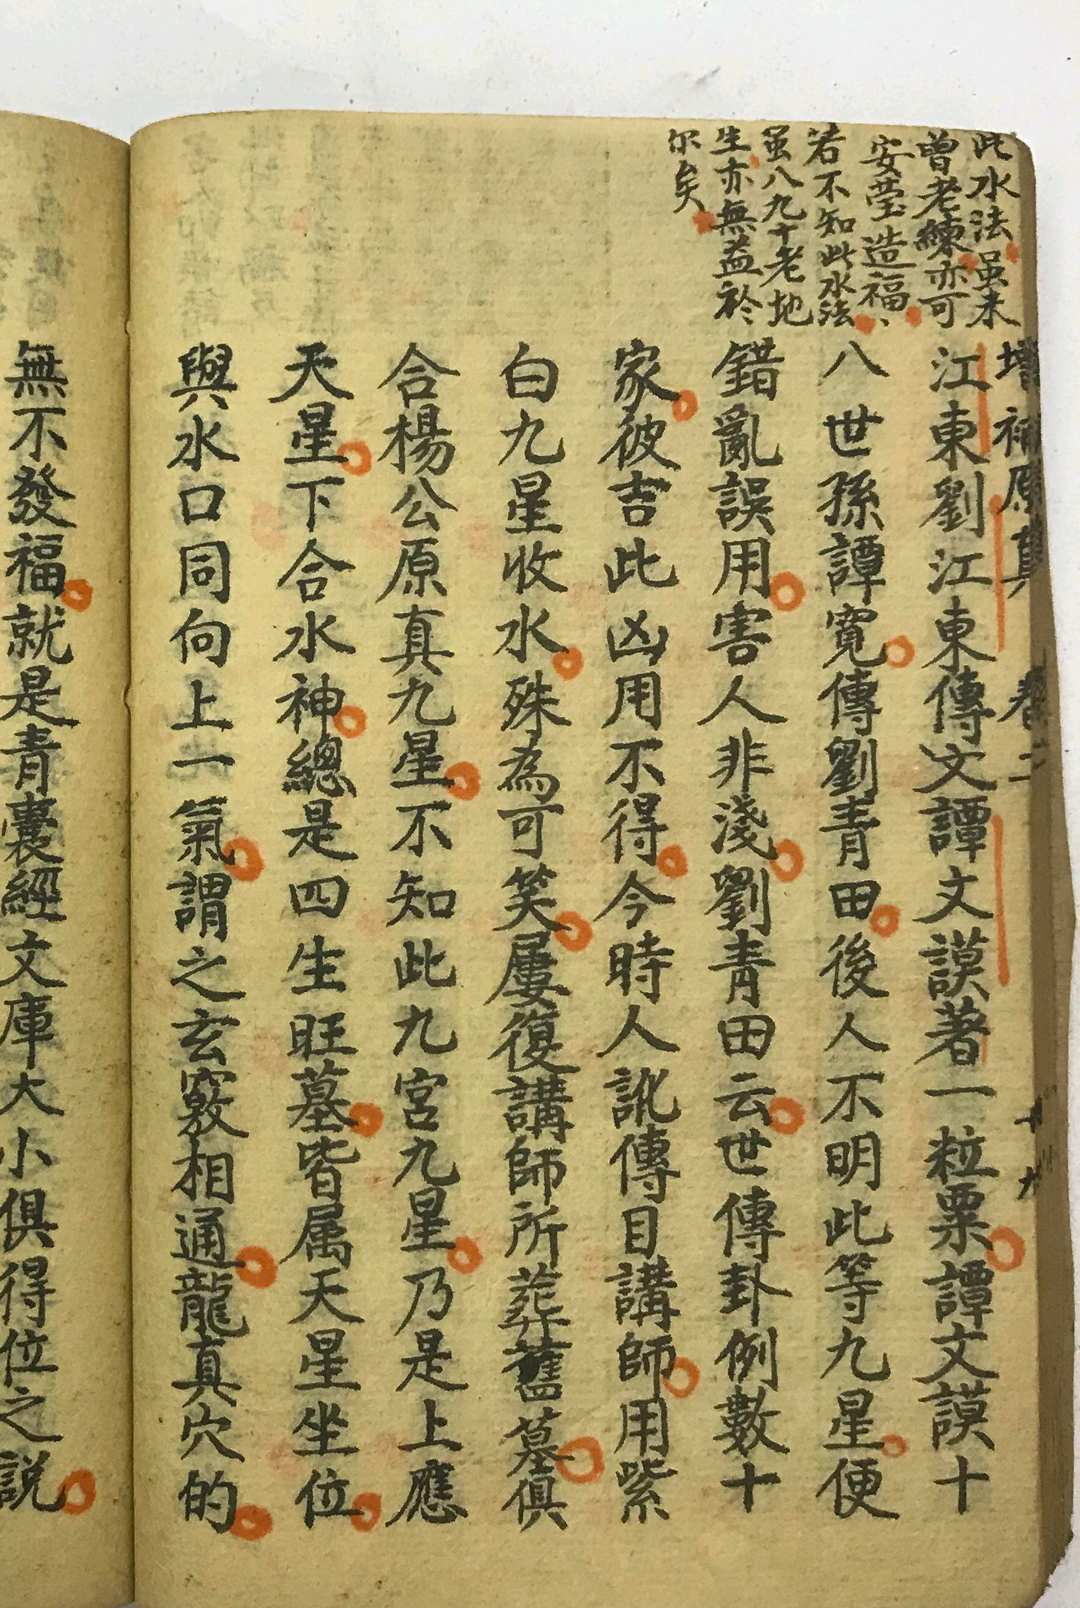 此水法虽未
曾老練亦可
安瑩造福、
若不知此水法
虽八九十老地
生亦無益於
尔矣
增補原真 卷二 十九
江東劉江東傳文譚文謨著一粒粟譚文謨十
八世孫譚寬傳劉青田後人不明此等九星便
錯亂誤用害人非淺劉青田云世傳卦例數十
家彼吉此凶用不得今時人訛傳目講師用紫
白九星收水殊為可笑屢復講師所葬舊墓俱
合楊公原真九星不知此九宮九星乃是上應
天星下合水神總是四生旺墓皆属天星坐位
與水口同向上一氣謂之玄竅相通龍真穴的
無不發福就是青囊經文庫大小俱得位之説